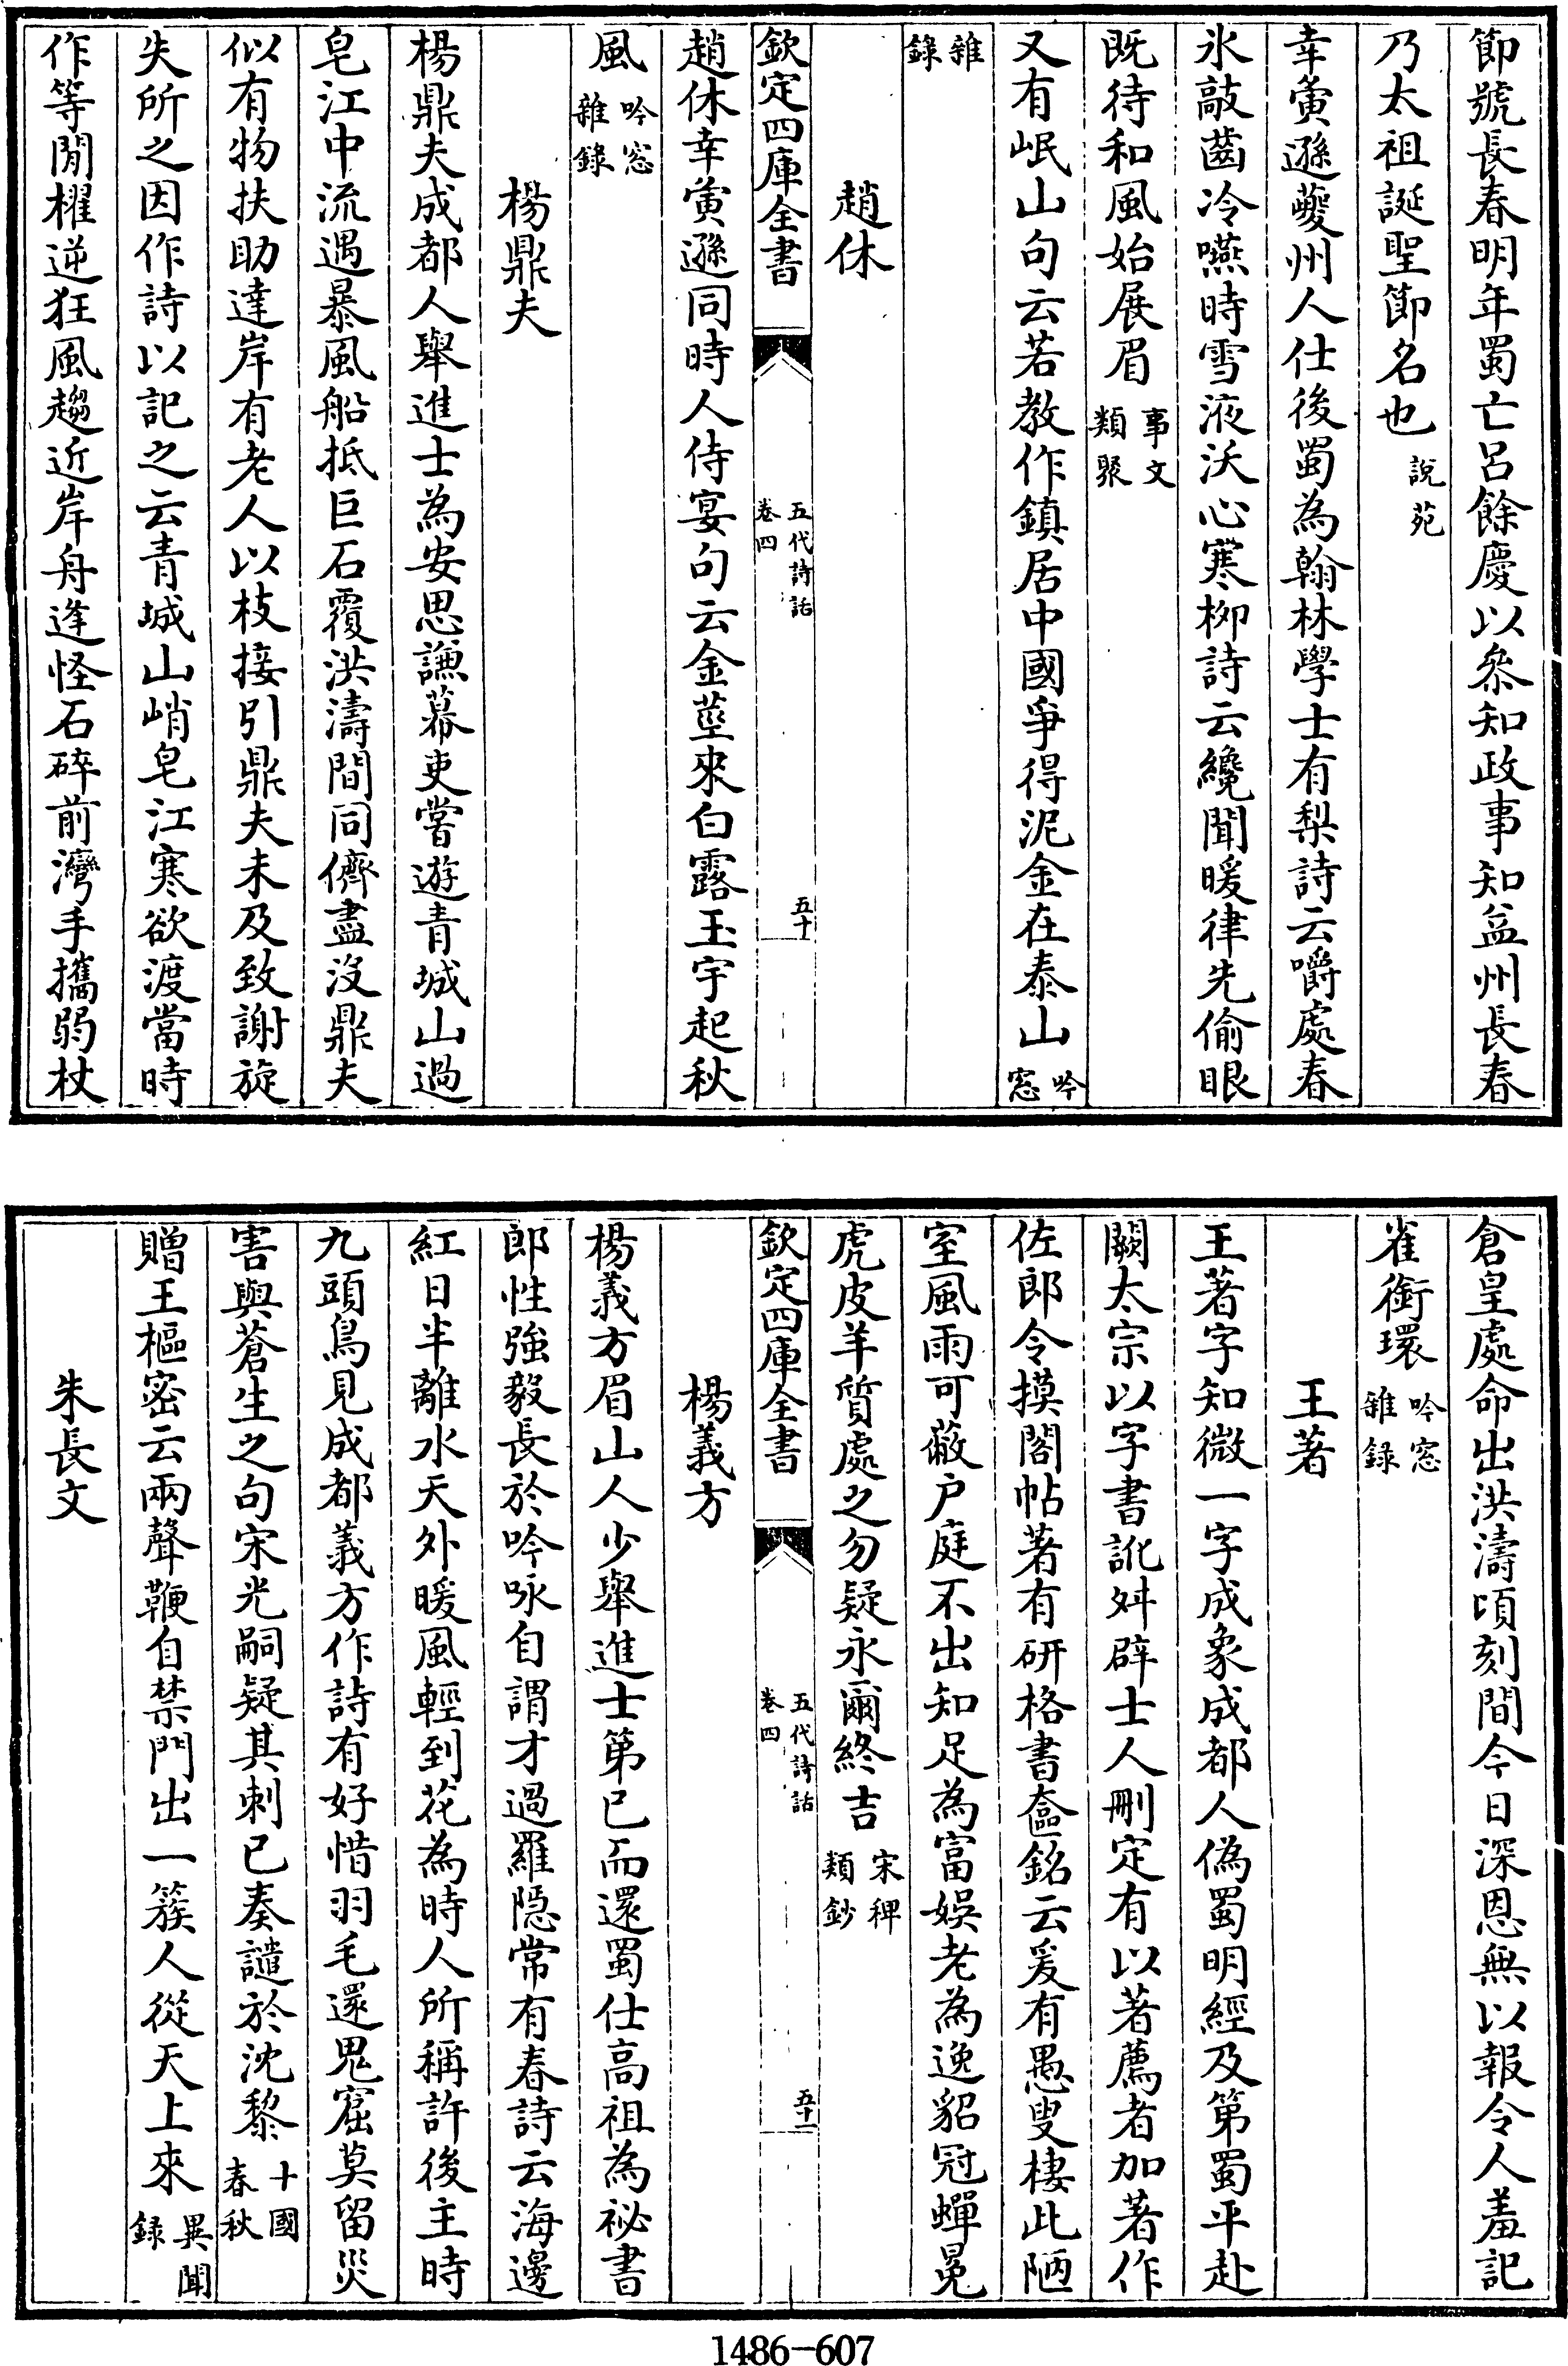 節號長春明年蜀亡呂餘慶以叅知政事知益州長春
乃太祖誕聖節名也說苑
幸夤遜夔州人仕後蜀為翰林學士有梨詩云嚼處春
氷敲齒冷嚥時雪液沃心寒柳詩云纔聞暖律先偷眼
既待和風始展眉事文類聚
又有岷山句云若教作鎮居中國爭得泥金在泰山吟窓
雜錄
趙休
欽定四庫全書
五代詩話
卷四
五十
趙休幸夤遜同時人侍宴句云金莖來白露玉宇起秋
風吟窓雜錄
楊鼎夫
楊鼎夫成都人舉進士為安思謙幕吏嘗遊青城山過
皂江中流遇暴風船抵巨石覆洪濤間同儕盡沒鼎夫
似有物扶助達岸有老人以枝接引鼎夫未及致謝旋
失所之因作詩以記之云青城山峭皂江寒欲渡當時
作等閒櫂逆狂風趨近岸舟逢怪石碎前灣手攜弱杖
倉皇處命出洪濤頃刻間今日深恩無以報令人羞記
雀銜環吟窓雜録
王著
王著字知微一字成象成都人偽蜀明經及第蜀平赴
闕太宗以字書訛舛辟士人刪定有以著薦者加著作
佐郎令摸閣帖著有研格書奩銘云爰有愚叟棲此陋
室風雨可蔽户庭不出知足為富娛老為逸貂冠蟬冕
虎皮羊質處之勿疑永爾終吉宋稗類鈔
欽定四庫全書
五代詩話
卷四
五十一
楊義方
楊義方眉山人少舉進士第已而還蜀仕高祖為祕書
郎性強毅長於吟咏自謂才過羅隱常有春詩云海邊
紅日半離水天外暖風輕到花為時人所稱許後主時
九頭鳥見成都義方作詩有好惜羽毛還鬼窟莫留災
害與蒼生之句宋光嗣疑其刺已奏譴於沈黎十國春秋
贈王樞密云兩聲鞭自禁門出一簇人從天上來異聞録
朱長文
1486-607